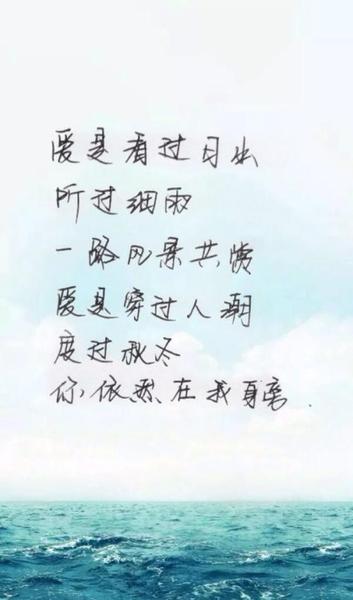 爱是看过日出
听过细雨
一路风景共赏
爱是穿过人潮
度过秋冬
你依然在我身旁.